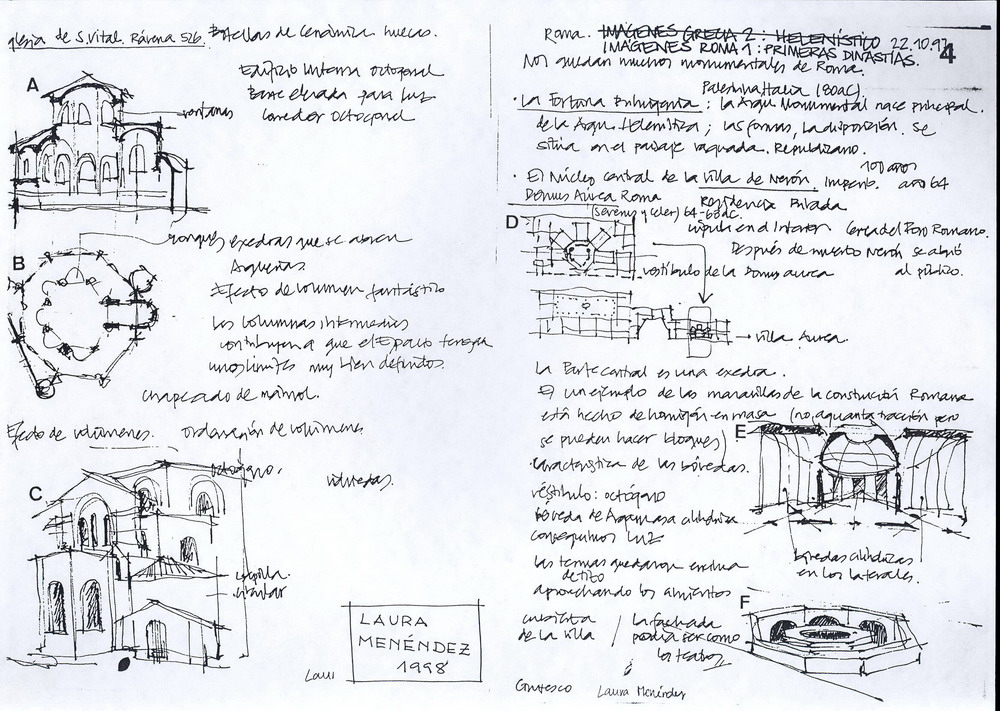 iglesia de S. Vital. Rávena 526. Botellas de cerámica huecas.
A
Edificio interno octogonal
Base elevada para luz
ventanas
corredor octogonal
B
exedras que se abren
pequeñas.
Efecto de volumen fantástico
Las columnas intermedias
contribuyen a que el Espacio tenga
unos límites muy bien definidos.
chapeado de mármol.
Efecto de volúmenes. ordenación de volúmenes
C
octógono.
capilla.
LAURA
MENÉNDEZ
1998
Laur
Roma. IMÁGENES GRECIA 2 : HELENÍSTICO 22.10.97
4
IMÁGENES ROMA 1 : PRIMERAS DINASTÍAS.
Nos quedan muchos monumentales de Roma.
Palestrina Italia (80aC).
· La Fortuna Primigenia : la Arqu. Monumental nace principal.
de la Arqu. Helenística ; las formas, la disposición. Se
sitúa en el paisaje. Republicano.
100 años
· El Núcleo central de la Villa de Nerón. Imperio. año 64
Domus Áurea Roma
Residencia Privada
(Severus y Celer) 64-68 dC.
D
cúpula en el Interior Cerca del Foro Romano.
Después de muerto Nerón se abrió
vestíbulo de la Domus aurea
al público.
→ villa Áurea.
La Parte central es una exedra.
Es un ejemplo de las maravillas de la construcción Romana
está hecho de hormigón en masa (no aguanta tracción pero
se pueden hacer bloques)
E
·característica de las bóvedas.
vestíbulo: octógono
bóveda de Argamasa cilíndrica
conseguimos LUZ
bóvedas cilíndricas
en los laterales.
las termas quedaron encima
de Tito
aprovechando los cimientos
F
cubierta
de la villa
la fachada
podía ser como
los teatros
Grutesco
Laura Menéndez